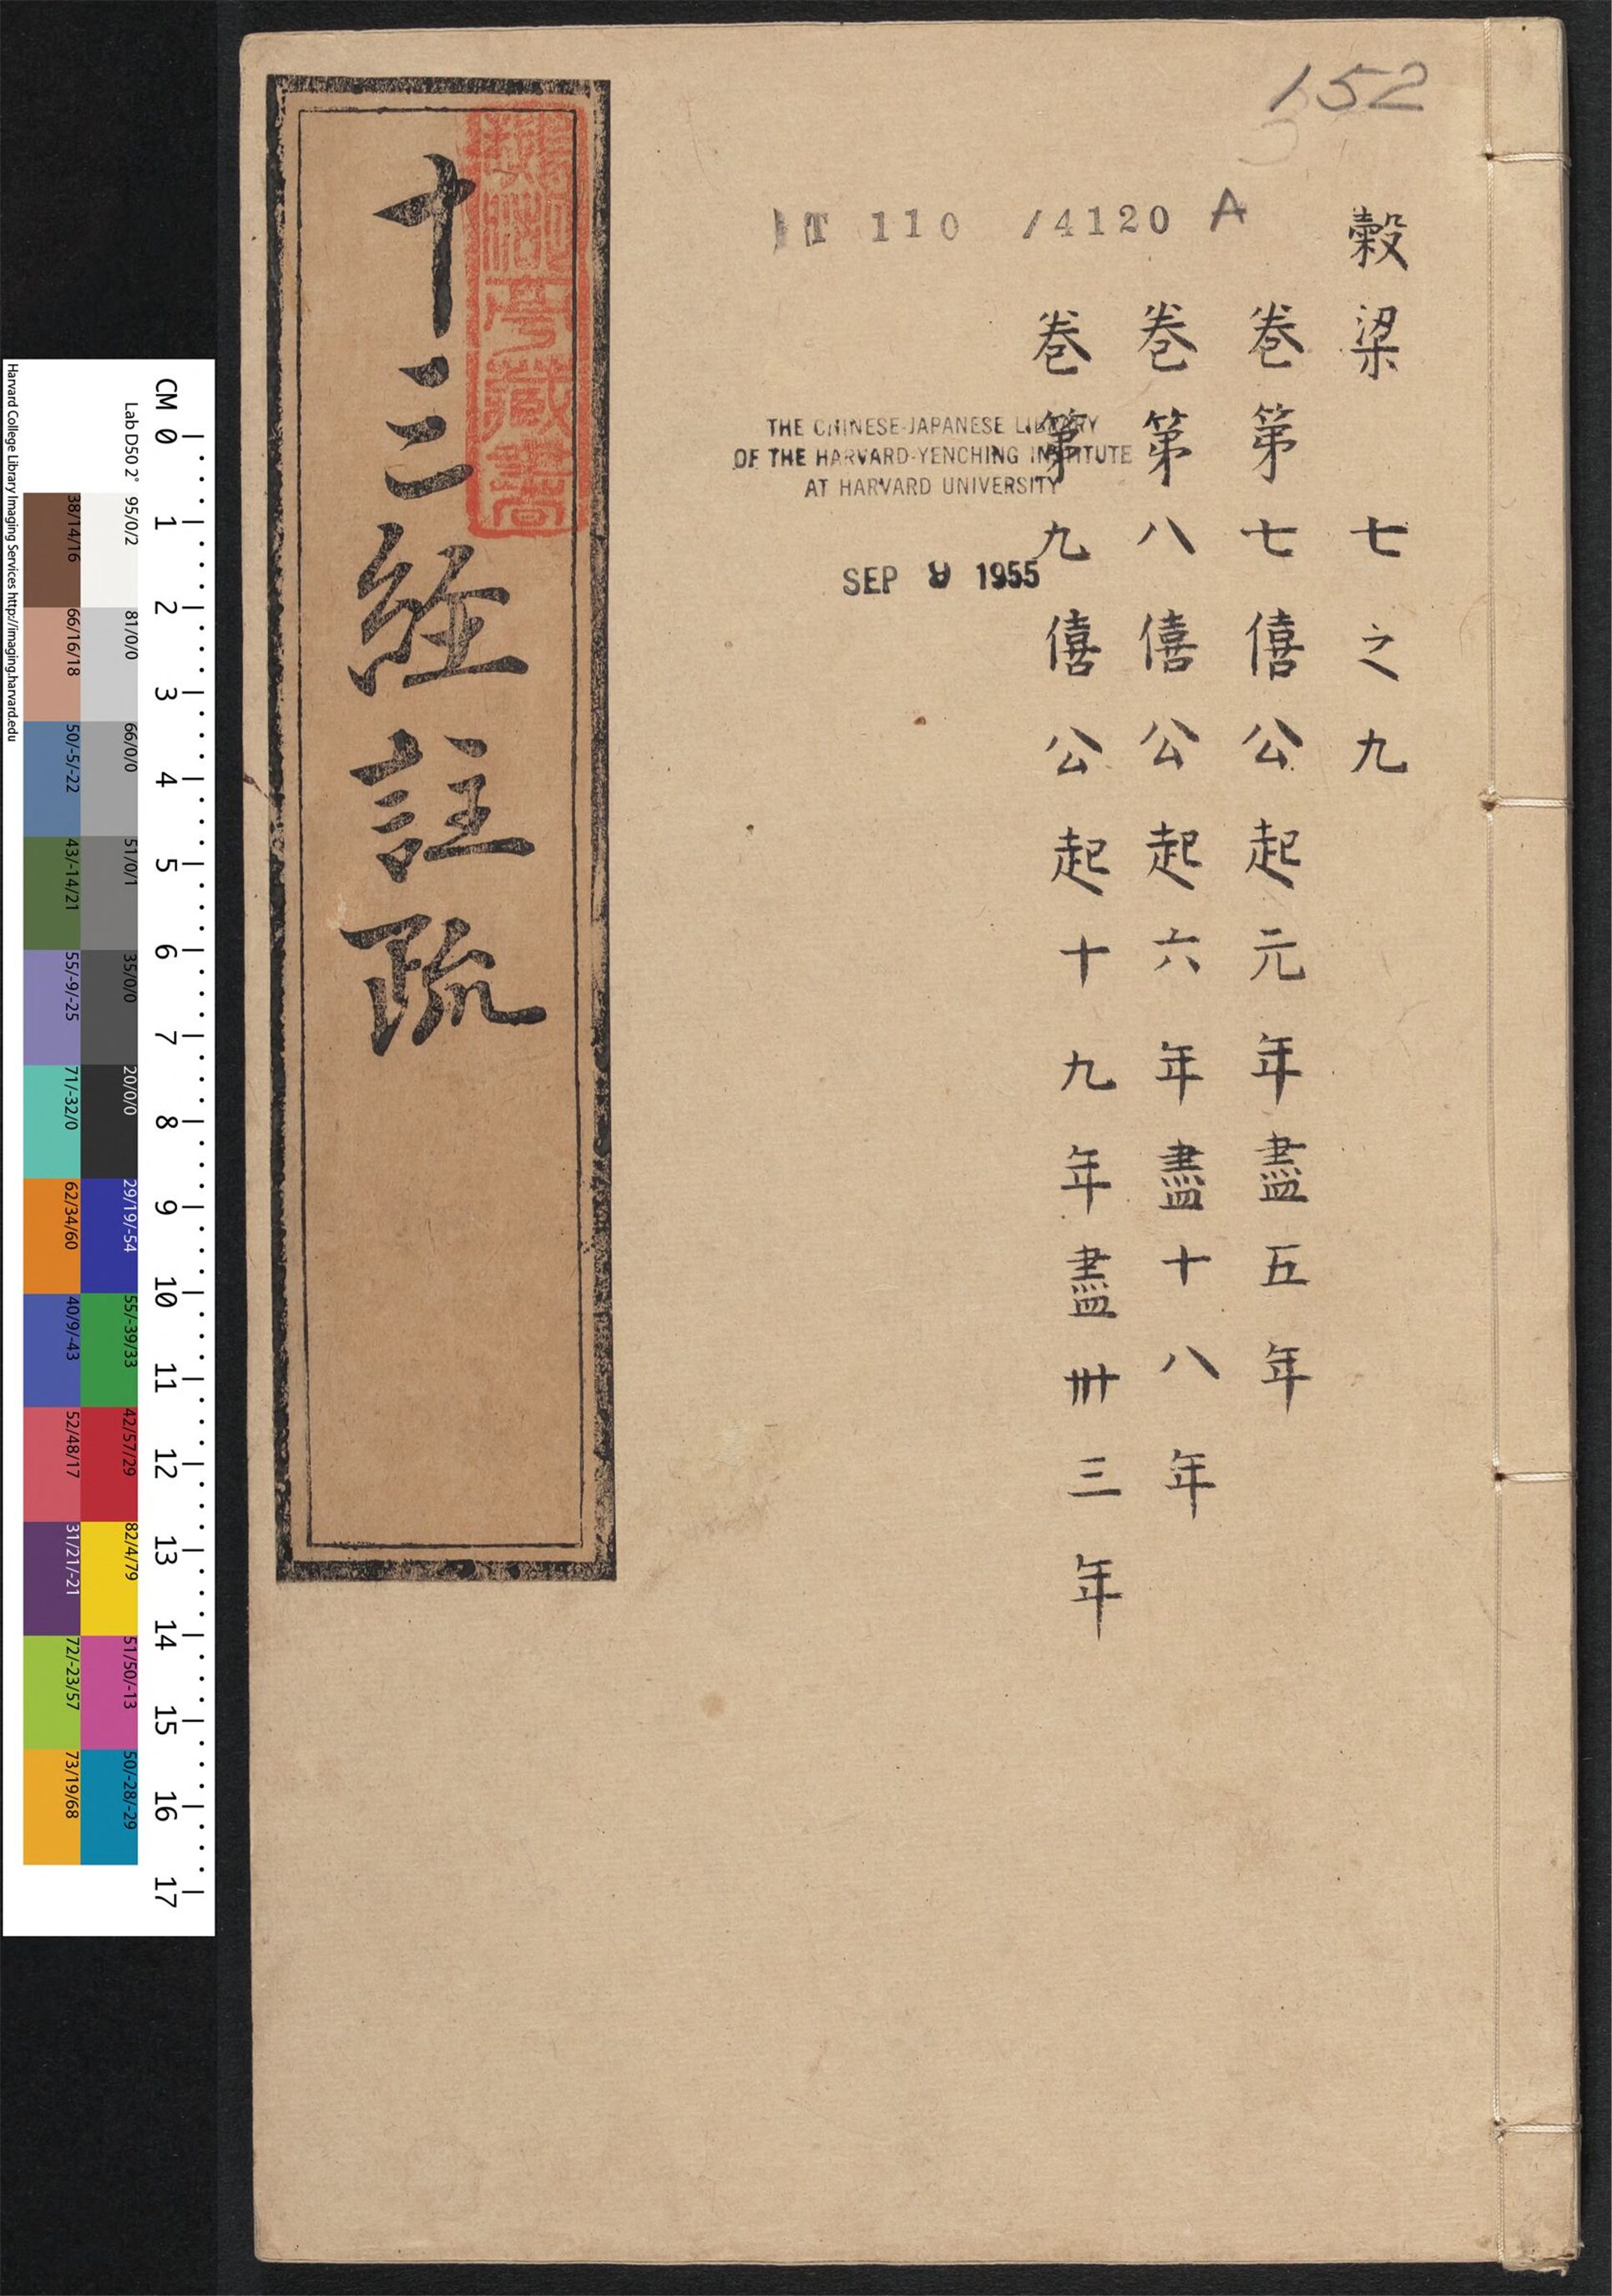 152
T 110 /4120 A
榖梁 七之九
卷第七 僖公起元年盡五年
卷第八 僖公起六年盡十八年
卷第九 僖公起十九年盡卅三年
THE CHINESE-JAPANESE LIBRARY
OF THE HARVARD-YENCHING INSTITUTE
AT HARVARD UNIVERSITY
SEP 9 1955
十三經註疏
藏書
CM 0 1 2 3 4 5 6 7 8 9 10 11 12 13 14 15 16 17
Lab D50 2° 95/0/2 81/0/0 66/0/0 51/0/1 35/0/0 20/0/0 29/19/-54 55/-39/33 42/57/29 82/4/79 51/50/-13 50/-28/-29
38/14/16 66/16/18 50/-5/-22 43/-14/21 55/-9/-25 71/-32/0 62/34/60 40/9/-43 52/48/17 31/21/-21 72/-23/57 73/19/68
Harvard College Library Imaging Services http://imaging.harvard.edu